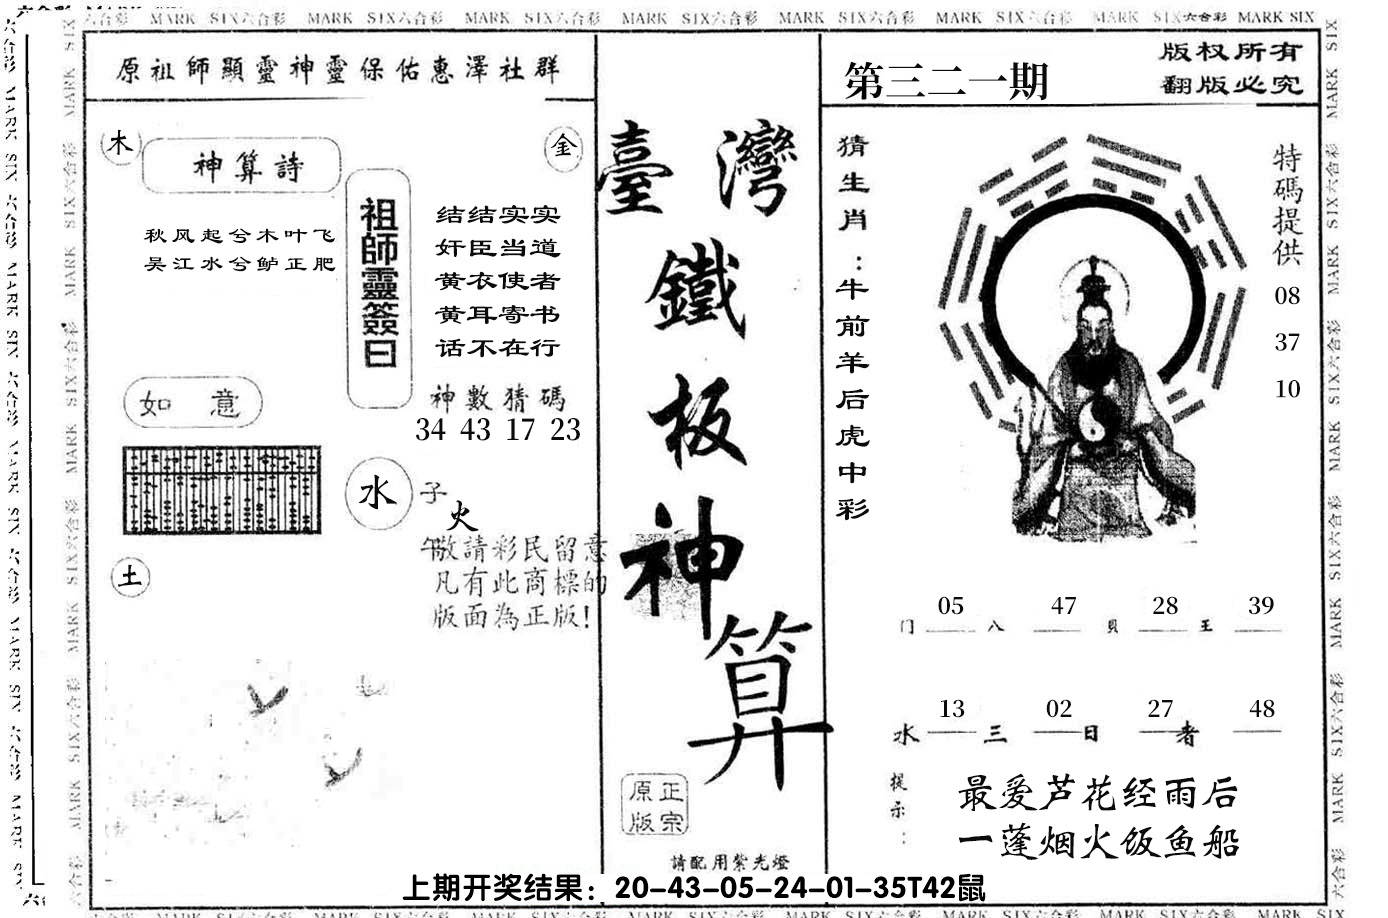 六合彩 MARK SIX六合彩 MARK SIX六合彩 MARK SIX六合彩 MARK SIX六合彩 MARK SIX六合彩 MARK SIX六合彩 MARK SIX六合彩 MARK SIX
原祖師顯靈神靈保佑惠澤社群
木
神算詩
金
秋风起兮木叶飞
吴江水兮鲈正肥
祖師靈簽曰
结结实实
奸臣当道
黄衣使者
黄耳寄书
话不在行
神數猜碼
34 43 17 23
如意
水
子
火
午
敬請彩民留意
凡有此商標的
版面為正版!
土
臺灣
鐵
板
神
算
正宗
原版
請配用紫光燈
第三二一期
版权所有
翻版必究
猜生肖：牛前羊后虎中彩
特碼提供
08
37
10
05 47 28 39
门 八 貝 王
13 02 27 48
水 三 日 者
提示：
最爱芦花经雨后
一蓬烟火饭鱼船
上期开奖结果：20-43-05-24-01-35T42鼠